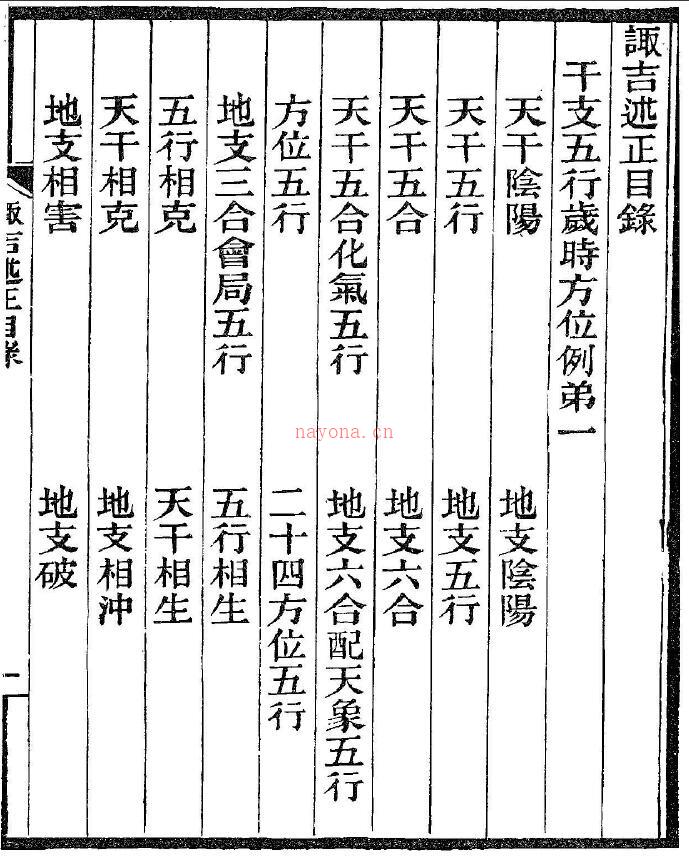 諏吉述正目錄
干支五行歲時方位例弟一
天干陰陽 地支陰陽
天干五行 地支五行
天干五合 地支六合
天干五合化氣五行 地支六合配天象五行
方位五行 二十四方位五行
地支三合會局五行 五行相生
五行相克 天干相生
天干相克 地支相沖
地支相害 地支破
諏吉述正目錄
一
nayona.cn